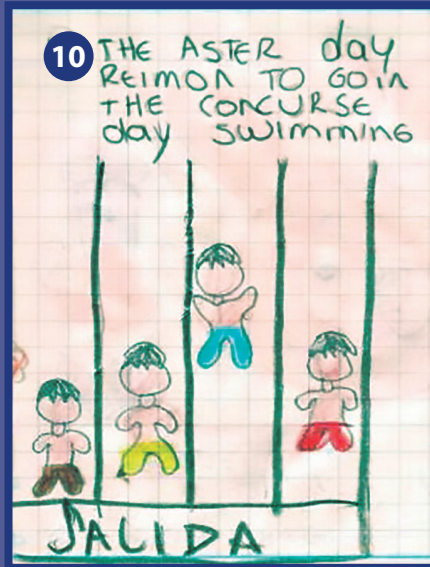 10
THE ASTER day
REIMON TO GO in
THE CONCURSE
day SWIMMING
SALIDA